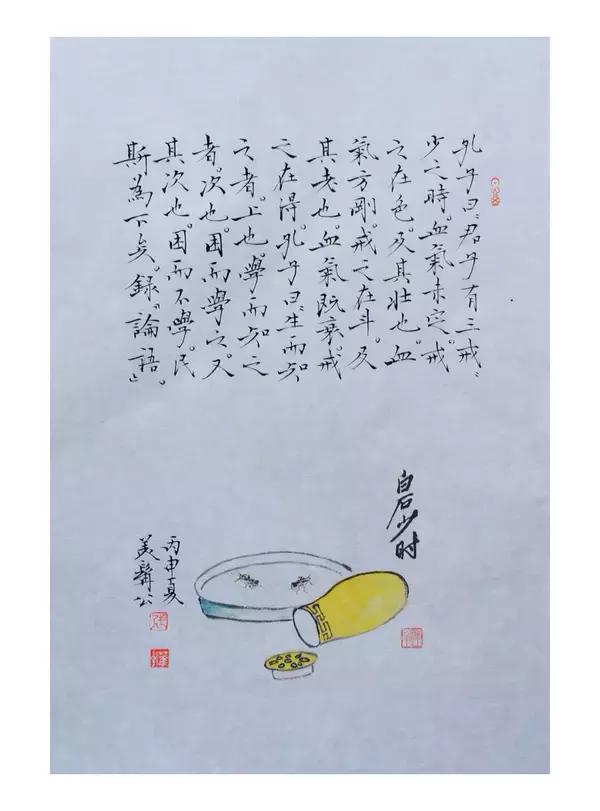 孔子曰:君子有三戒:
少之時。血氣未定。戒
之在色。及其壯也。血
氣方剛。戒之在斗。及
其老也。血氣既衰。戒
之在得。孔子曰:生而知
之者。上也。學而知之
者。次也。困而學之。又
其次也。困而不學。民
斯為下矣。錄“論語”。
白石少时
丙申夏
美髯公